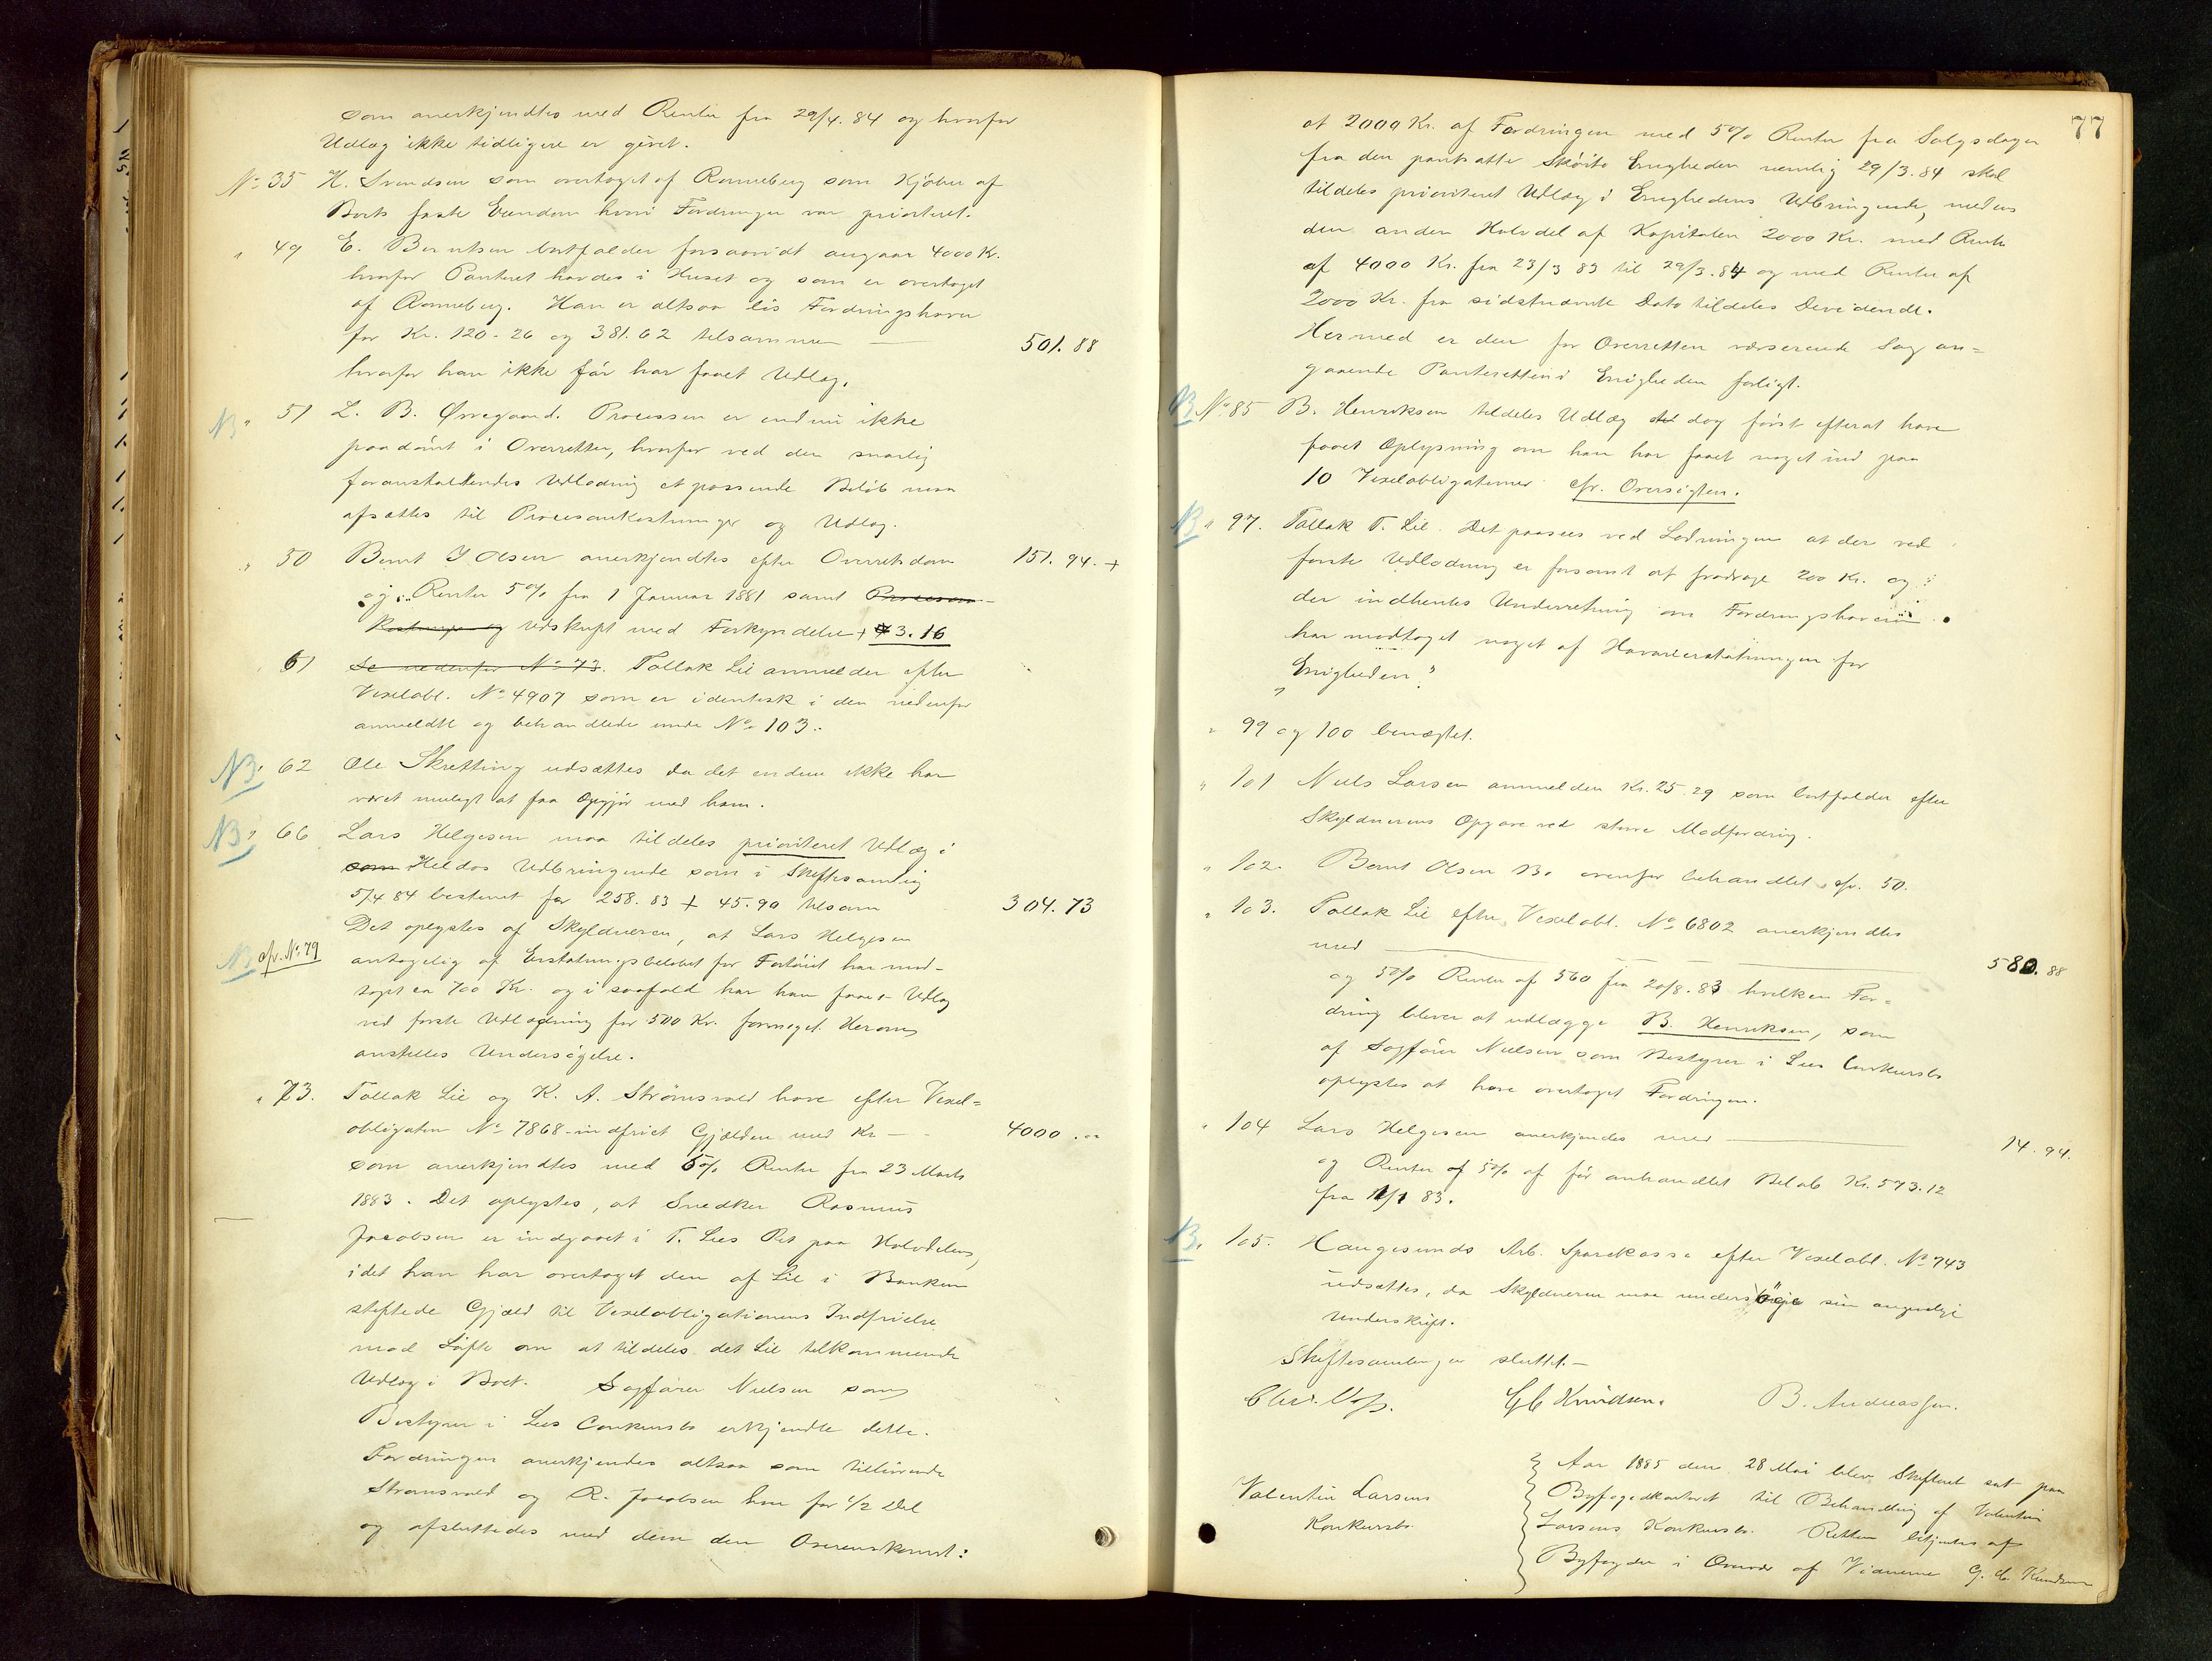 som anerkjendtes med Renter fra 29/4. 84 og hvorfor
Udlæg ikke tidligere er givet.
No 35 H. Svendsen som overtaget af Ronneberg som Kjøber af
Boets faste Eiendom hvori Fordringen var prioriteret.
" 49 E. Berntsen bortfalder forsaavidt angaar 4000 Kr.
hvorfor Panteret havdes i Huset og som er overtaget
af Ronneberg. Han er altsaa lis Fordringshaver
for Kr. 120.26 og 381.62 tilsammen — 501.88
hvorfor han ikke før har faaet Udlæg.
NB " 51 L. B. Ørregaard. Processen er endnu ikke
paadømt i Overretten, hvorfor ved den snarlig
foranstaltendes Udlodning et passende Beløb maa
afsættes til Procesomkostninger og Udlæg.
" 50 Bernt J Olsen anerkjendtes efter Overretsdom 151.94. +
og Renter 5% fra 1 Januar 1881 samt Procesom-
kostninger og Udskrift med Forkyndelse + 3.16
" 61 Se nedenfor No 73. Tollak Lie anmelder efter
Vexelobl. No 4907 som er identisk i den nedenfor
anmeldte og behandlede under No 103.
NB " 62 Ole Skretting udsættes da det endnu ikke har
været muligt at faa Opgjør med ham.
NB " 66 Lars Helgesen maa tildeles prioriteret Udlæg i
som Heldos Udbringende som i Skiftesamling
5/4 84 bestemt for 258.83 + 45.90 tilsam 304.73
Det oplystes af Skyldneren, at Lars Helgesen
NB cfr. No 79 antagelig af Erstatningsbeløbet for Fartøiet har mod-
taget ca 700 Kr. og i saafald har han faaet Udlæg
ved første Udlodning for 500 Kr. formeget. Herom
anstilles Undersøgelse.
" 73. Tollak Lie og K. A. Strømsvold have efter Vexel=
obligation No 7868 indfriet Gjælden med Kr — 4000.00
som anerkjendtes med 5% Renter fra 23 Marts
1883. Det oplystes, at Snedker Rasmus
Jacobsen er indgaaet i T. Lies Ret paa Halvdelen,
idet han har overtaget den af Lie i Banken
stiftede Gjæld til Vexelobligationens Indfrielse
mod Løfte om at tildeles det Lie tilkommende
Udlæg i Boet. Sagfører Nielsen som
Bestyrer i Lies Conkursbo erkjendte dette.
Fordringen anerkjendes altsaa som tilhørende
Strømsvold og R. Jacobsen hver for 1/2 Del
og afsluttedes med dem den Overenskomst:
77
at 2000 Kr. af Fordringen med 5% Renter fra Salgsdagen
fra den pantsatte Skøite Enigheden nemlig 29/3.84 skal
tildeles prioriteret Udlæg i Enighedens Udbringende, medens
den anden Halvdel af Kapitalen 2000 Kr. med Rente
af 4000 Kr. fra 23/3 83 til 29/3.84 og med Renter af
2000 Kr. fra sidstnævnte Dato tildeles Dividende.
Hermed er den for Overretten værserende Sag an=
gaaende Panteretten i Enigheden forligt.
NB No 85 B. Henriksen tildeles Udlæg dog først efterat have
faaet Oplysning om han har faaet noget ind paa
10 Vexelobligationer cfr. Oversigten.
NB " 97. Tollak T. Lie. Det paasees ved Lodningen at der ved
første Udlodning er forsømt at fradrage 200 Kr. og
der indhentes Underretning om Fordringshaveren
har modtaget noget af Havarierstatningen for
"Enigheden"
" 99 og 100 benægtet.
" 101 Niels Larsen anmelden Kr. 25.29 som bortfalder efter
Skyldnerens Opgave ved større Modfordring.
" 102. Bernt Olsen Bø ovenfor behandlet cfr. 50.
" 103. Tollak Lie efter Vexelobl. No 6802 anerkjendtes
med — 580.88
og 5% Renter af 560 fra 20/8.83 hvilken For=
dring bliver at udlægge B. Henriksen, som
af Sagfører Nielsen som Bestyrer i Lies Conkursbo
oplystes at have overtaget Fordringen.
" 104 Lars Helgesen anerkjendes med — 14.94.
og Renter af 5% af før anhandlet Beløb Kr. 573.12
fra 11/1 83.
NB. " 105. Haugesunds Arb. Sparekasse efter Vexelobl. No 743
udsættes, da Skyldneren maa undersøge sin angivelige
Underskrift.
Skiftesamlingen sluttet.—
G C Knudsen. B. Andreassen.
Valentin Larsens
Konkursbo.
Aar 1885 den 28 Mai blev Skifteret sat paa
Byfogedkontoret til Behandling af Valentin
Larsens Konkursbo. Retten betjentes af
Byfogden i Overvær af Vidnerne G. C. Knudsen